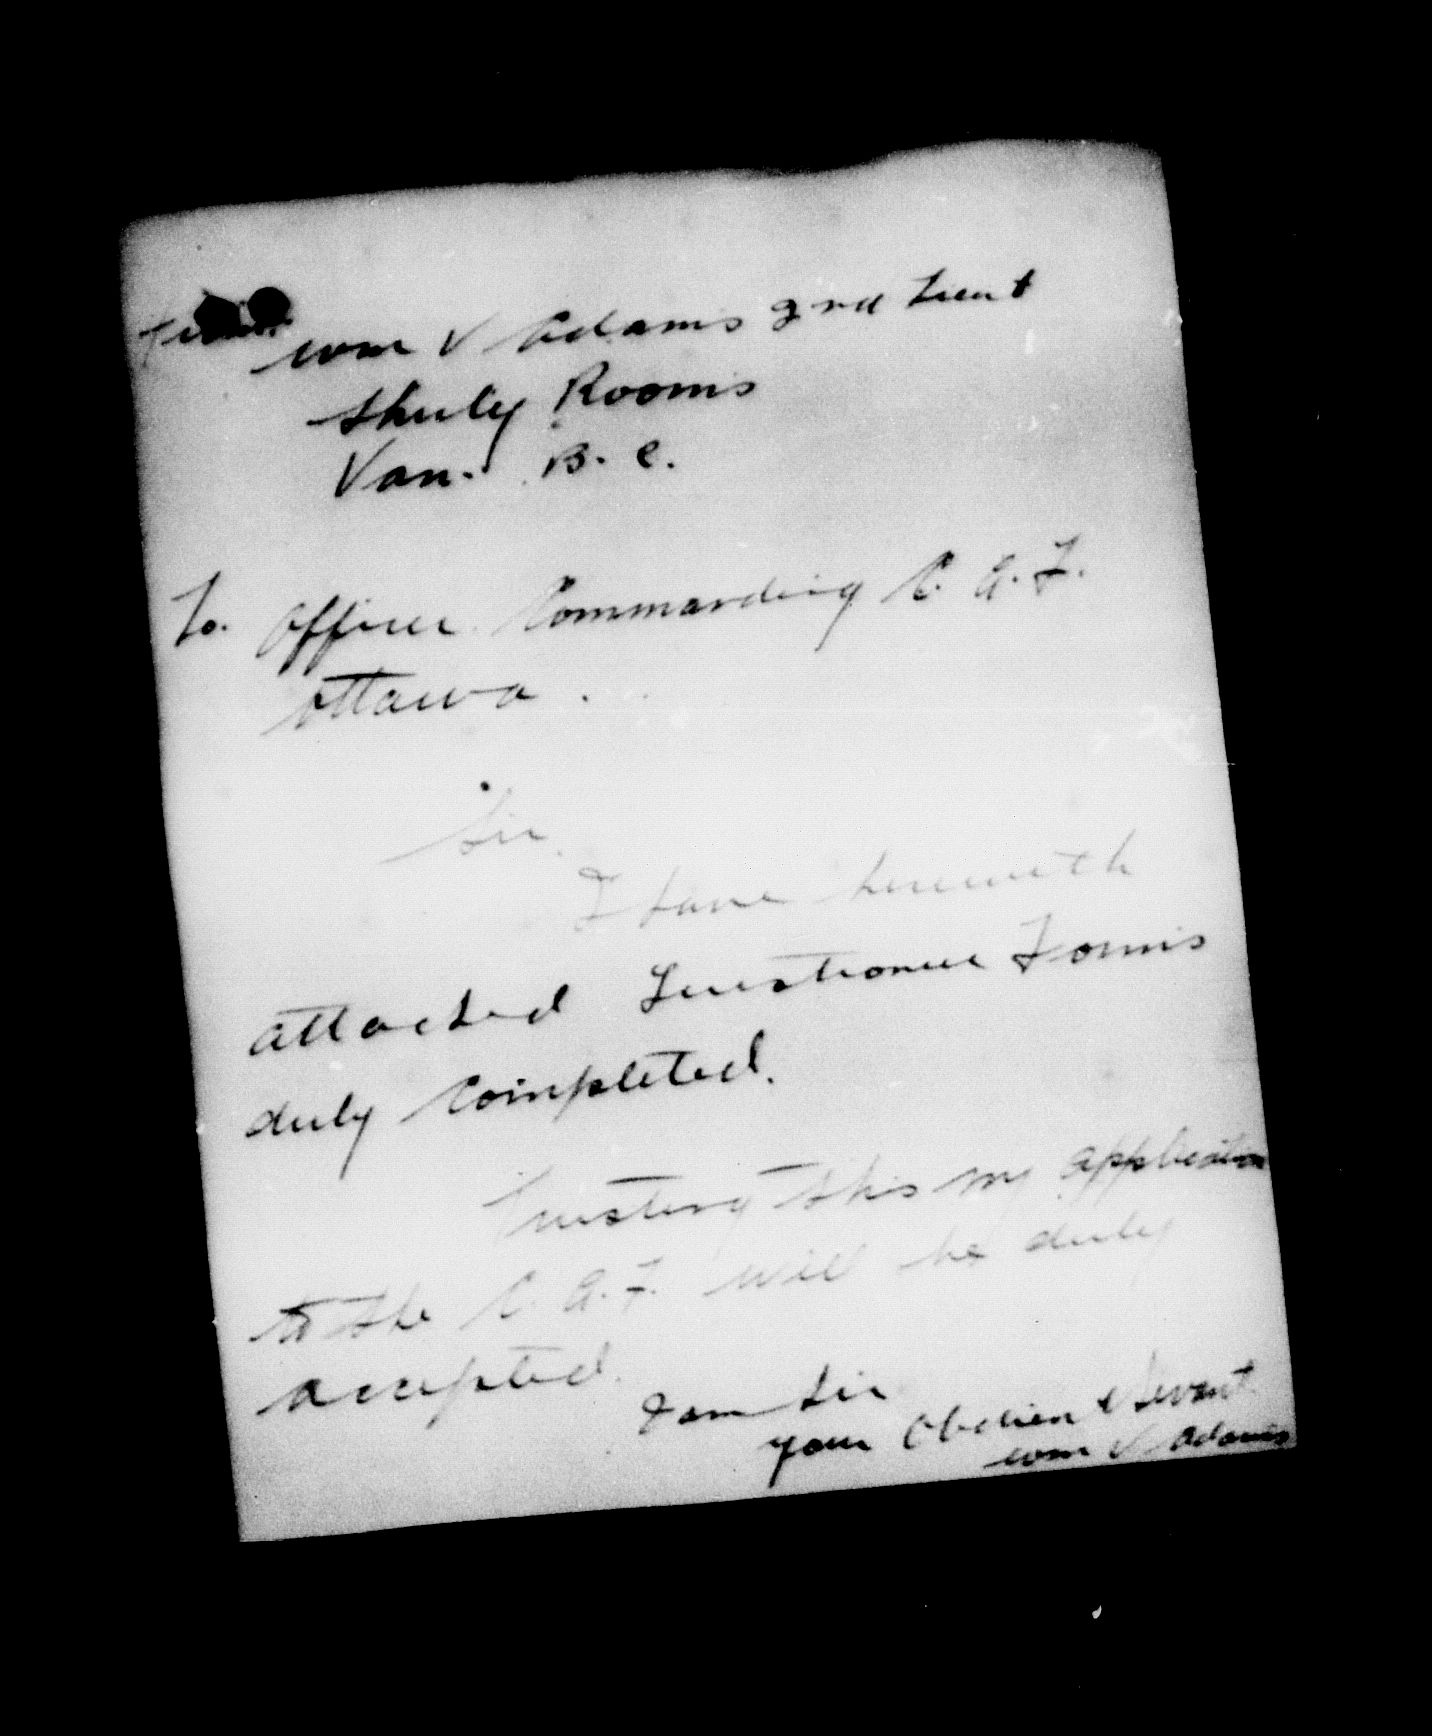 From Wm V Adams 2nd Lieut
Rooms
Van. B. C.
To. Officer Commanding C. A. F.
Ottawa.
Sir.
I have herewith
attached Forms
duly Completed.
Trusting this my application
to the C. A. F. will be duly
accepted.
I am Sir
your Obedient Servant
Wm V Adams